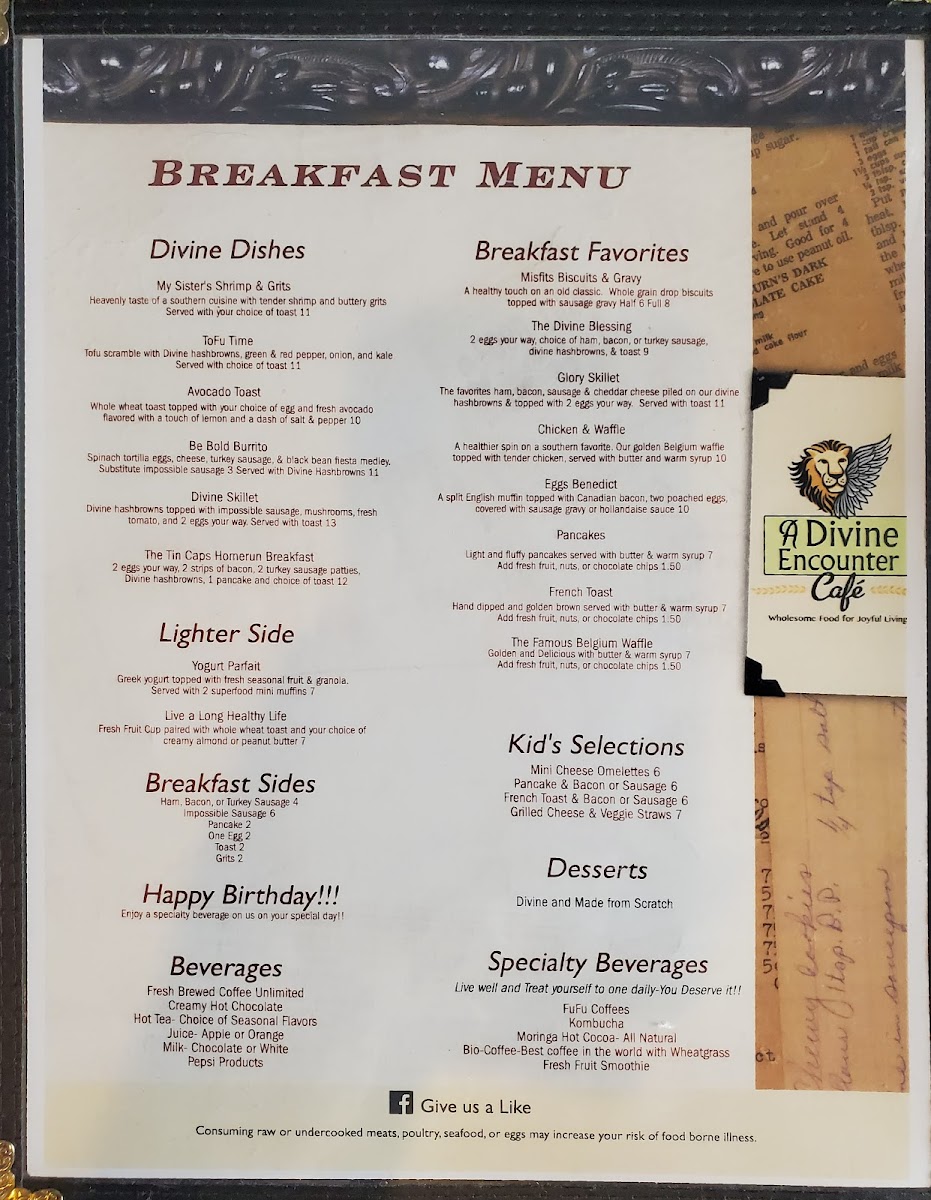 BREAKFAST MENU
Divine Dishes
My Sister's Shrimp & Grits
Heavenly taste of a southern cuisine with tender shrimp and buttery grits
Served with your choice of toast 11
ToFu Time
Tofu scramble with Divine hashbrowns, green & red pepper, onion, and kale
Served with choice of toast 11
Avocado Toast
Whole wheat toast topped with your choice of egg and fresh avocado
flavored with a touch of lemon and a dash of salt & pepper 10
Be Bold Burrito
Spinach tortilla eggs, cheese, turkey sausage, & black bean fiesta medley.
Substitute impossible sausage 3 Served with Divine Hashbrowns 11
Divine Skillet
Divine hashbrowns topped with impossible sausage, mushrooms, fresh
tomato, and 2 eggs your way. Served with toast 13
The Tin Caps Homerun Breakfast
2 eggs your way, 2 strips of bacon, 2 turkey sausage patties,
Divine hashbrowns, 1 pancake and choice of toast 12
Lighter Side
Yogurt Parfait
Greek yogurt topped with fresh seasonal fruit & granola.
Served with 2 superfood mini muffins 7
Live a Long Healthy Life
Fresh Fruit Cup paired with whole wheat toast and your choice of
creamy almond or peanut butter 7
Breakfast Sides
Ham, Bacon, or Turkey Sausage 4
Impossible Sausage 6
Pancake 2
One Egg 2
Toast 2
Grits 2
Happy Birthday!!!
Enjoy a specialty beverage on us on your special day!!
Beverages
Fresh Brewed Coffee Unlimited
Creamy Hot Chocolate
Hot Tea- Choice of Seasonal Flavors
Juice- Apple or Orange
Milk- Chocolate or White
Pepsi Products
Breakfast Favorites
Misfits Biscuits & Gravy
A healthy touch on an old classic. Whole grain drop biscuits
topped with sausage gravy Half 6 Full 8
The Divine Blessing
2 eggs your way, choice of ham, bacon, or turkey sausage,
divine hashbrowns, & toast 9
Glory Skillet
The favorites ham, bacon, sausage & cheddar cheese piled on our divine
hashbrowns & topped with 2 eggs your way. Served with toast 11
Chicken & Waffle
A healthier spin on a southern favorite. Our golden Belgium waffle
topped with tender chicken, served with butter and warm syrup 10
Eggs Benedict
A split English muffin topped with Canadian bacon, two poached eggs,
covered with sausage gravy or hollandaise sauce 10
Pancakes
Light and fluffy pancakes served with butter & warm syrup 7
Add fresh fruit, nuts, or chocolate chips 1.50
French Toast
Hand dipped and golden brown served with butter & warm syrup 7
Add fresh fruit, nuts, or chocolate chips 1.50
The Famous Belgium Waffle
Golden and Delicious with butter & warm syrup 7
Add fresh fruit, nuts, or chocolate chips 1.50
Kid's Selections
Mini Cheese Omelettes 6
Pancake & Bacon or Sausage 6
French Toast & Bacon or Sausage 6
Grilled Cheese & Veggie Straws 7
Desserts
Divine and Made from Scratch
Specialty Beverages
Live well and Treat yourself to one daily-You Deserve it!!
FuFu Coffees
Kombucha
Moringa Hot Cocoa- All Natural
Bio-Coffee-Best coffee in the world with Wheatgrass
Fresh Fruit Smoothie
sugar.
and pour over
Let stand 4
Good for 4
to use peanut oil.
DARK
CAKE
milk
cake flour
and eggs
Put
heat.
tbsp.
and
the
A Divine
Encounter
Café
Wholesome Food for Joyful Living
f Give us a Like
Consuming raw or undercooked meats, poultry, seafood, or eggs may increase your risk of food borne illness.